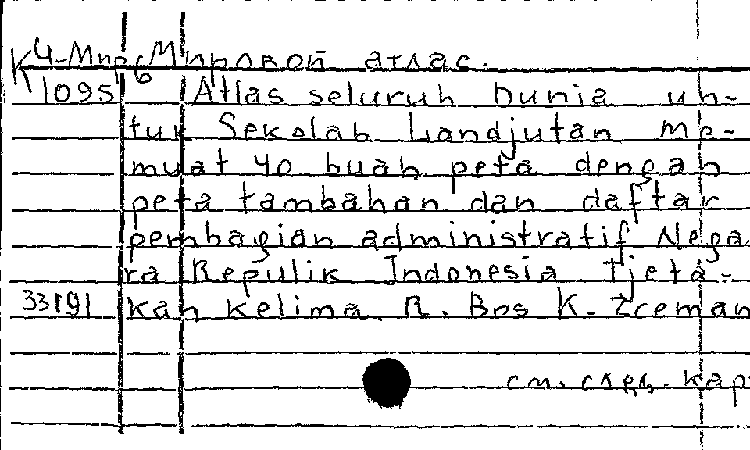 К 4-Мир6 Мировой атлас.
1095 Atlas seluruh Dunia un-
tuk Sekolah Landjutan me-
muat 40 buah peta dengah
peta tambahan dan daftar
pembagian administratif Nega
ra Repulik Indonesia Tjeta-
33191 kan kelima. R. Bos K. Zceman
см. след. кар